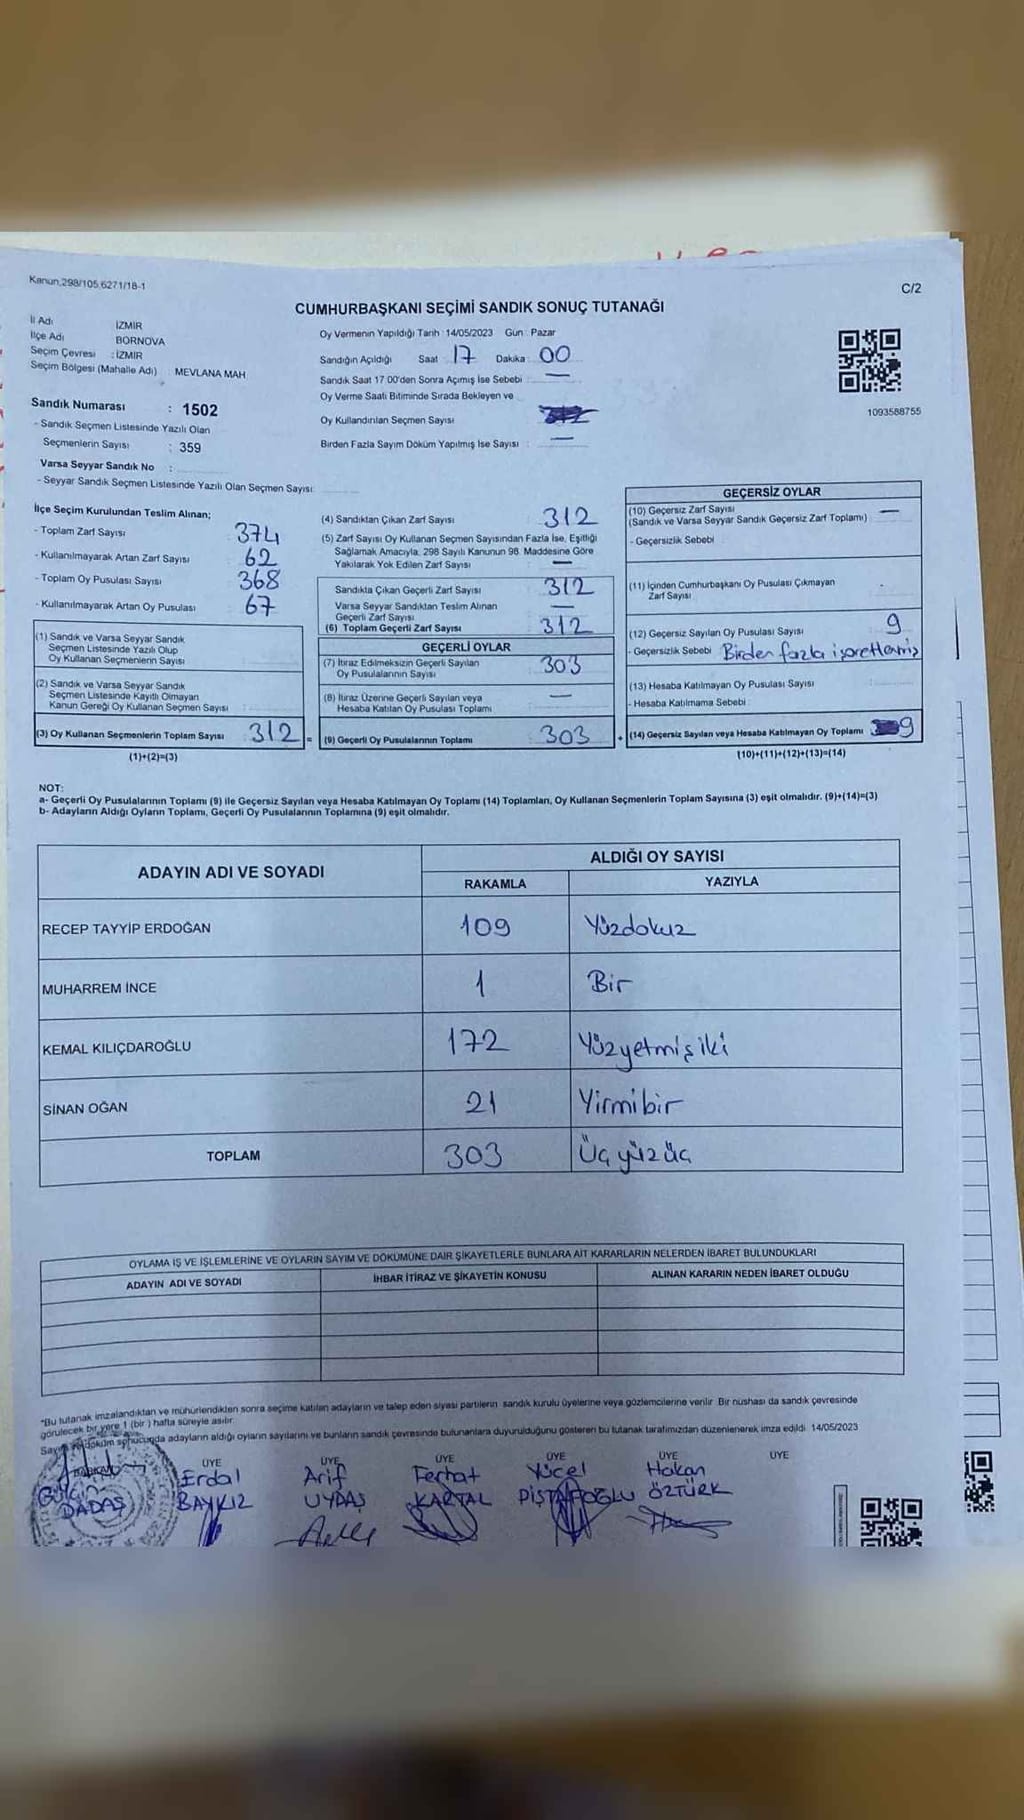 Kanun,298/105,6271/18-1
C/2
CUMHURBAŞKANI SEÇİMİ SANDIK SONUÇ TUTANAĞI
İl Adı İZMİR
İlçe Adı BORNOVA
Seçim Çevresi : İZMİR
Seçim Bölgesi (Mahalle Adı) MEVLANA MAH
Sandık Numarası : 1502
- Sandık Seçmen Listesinde Yazılı Olan
Seçmenlerin Sayısı : 359
Varsa Seyyar Sandık No :
- Seyyar Sandık Seçmen Listesinde Yazılı Olan Seçmen Sayısı:
Oy Vermenin Yapıldığı Tarih : 14/05/2023 Gün : Pazar
Sandığın Açıldığı Saat 17 Dakika 00
Sandık Saat 17 00'den Sonra Açımış İse Sebebi : —
Oy Verme Saati Bitiminde Sırada Bekleyen ve
Oy Kullandırılan Seçmen Sayısı
Birden Fazla Sayım Döküm Yapılmış İse Sayısı : —
1093588755
İlçe Seçim Kurulundan Teslim Alınan;
- Toplam Zarf Sayısı 374
- Kullanılmayarak Artan Zarf Sayısı 62
- Toplam Oy Pusulası Sayısı 368
- Kullanılmayarak Artan Oy Pusulası 67
(1) Sandık ve Varsa Seyyar Sandık
Seçmen Listesinde Yazılı Olup
Oy Kullanan Seçmenlerin Sayısı
(2) Sandık ve Varsa Seyyar Sandık
Seçmen Listesinde Kayıtlı Olmayan
Kanun Gereği Oy Kullanan Seçmen Sayısı
(3) Oy Kullanan Seçmenlerin Toplam Sayısı : 312 =
(1)+(2)=(3)
(4) Sandıktan Çıkan Zarf Sayısı 312
(5) Zarf Sayısı Oy Kullanan Seçmen Sayısından Fazla İse, Eşitliği
Sağlamak Amacıyla, 298 Sayılı Kanunun 98. Maddesine Göre
Yakılarak Yok Edilen Zarf Sayısı —
Sandıkta Çıkan Geçerli Zarf Sayısı 312
Varsa Seyyar Sandıktan Teslim Alınan
Geçerli Zarf Sayısı —
(6) Toplam Geçerli Zarf Sayısı 312
GEÇERLİ OYLAR
(7) İtiraz Edilmeksizin Geçerli Sayılan
Oy Pusulalarının Sayısı 303
(8) İtiraz Üzerine Geçerli Sayılan veya
Hesaba Katılan Oy Pusulası Toplamı —
(9) Geçerli Oy Pusulalarının Toplamı 303 +
GEÇERSİZ OYLAR
(10) Geçersiz Zarf Sayısı —
(Sandık ve Varsa Seyyar Sandık Geçersiz Zarf Toplamı)
- Geçersizlik Sebebi
(11) İçinden Cumhurbaşkanı Oy Pusulası Çıkmayan
Zarf Sayısı
(12) Geçersiz Sayılan Oy Pusulası Sayısı 9
- Geçersizlik Sebebi Birden fazla işaretlemiş
(13) Hesaba Katılmayan Oy Pusulası Sayısı
- Hesaba Katılmama Sebebi
(14) Geçersiz Sayılan veya Hesaba Katılmayan Oy Toplamı 9
(10)+(11)+(12)+(13)=(14)
NOT:
a- Geçerli Oy Pusulalarının Toplamı (9) ile Geçersiz Sayılan veya Hesaba Katılmayan Oy Toplamı (14) Toplamları, Oy Kullanan Seçmenlerin Toplam Sayısına (3) eşit olmalıdır. (9)+(14)=(3)
b- Adayların Aldığı Oyların Toplamı, Geçerli Oy Pusulalarının Toplamına (9) eşit olmalıdır.
ADAYIN ADI VE SOYADI ALDIĞI OY SAYISI
RAKAMLA YAZIYLA
RECEP TAYYİP ERDOĞAN 109 Yüzdokuz
MUHARREM İNCE 1 Bir
KEMAL KILIÇDAROĞLU 172 Yüzyetmişiki
SİNAN OĞAN 21 Yirmibir
TOPLAM 303 Üçyüzüç
OYLAMA İŞ VE İŞLEMLERİNE VE OYLARIN SAYIM VE DÖKÜMÜNE DAİR ŞİKAYETLERLE BUNLARA AİT KARARLARIN NELERDEN İBARET BULUNDUKLARI
ADAYIN ADI VE SOYADI İHBAR İTİRAZ VE ŞİKAYETİN KONUSU ALINAN KARARIN NEDEN İBARET OLDUĞU
*Bu tutanak imzalandıktan ve mühürlendikten sonra seçime katılan adayların ve talep eden siyasi partilerin sandık kurulu üyelerine veya gözlemcilerine verilir. Bir nüshası da sandık çevresinde
görülecek bir yere 1 (bir ) hafta süreyle asılır.
Sayım ve döküm sonucunda adayların aldığı oyların sayılarını ve bunların sandık çevresinde bulunanlara duyurulduğunu gösteren bu tutanak tarafımızdan düzenlenerek imza edildi. 14/05/2023
BAŞKAN ÜYE ÜYE ÜYE ÜYE ÜYE ÜYE
Erdal Arif Ferhat Yücel Hakan
DADAŞ BAYKIZ UYDAŞ KARTAL PİŞTOFOĞLU ÖZTÜRK